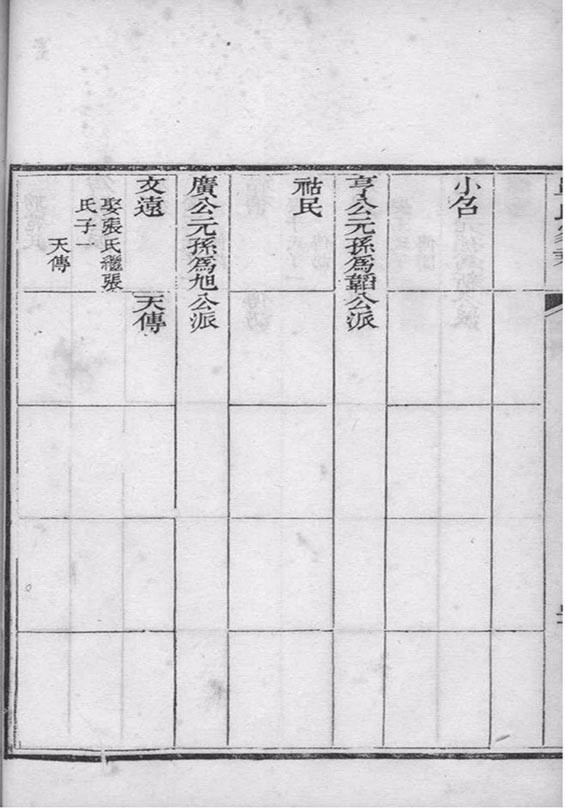 小名
亨公元孫為韜公派
祜民
廣公元孫為旭公派
文遠
天傳
娶張氏繼張
氏子一
天傳